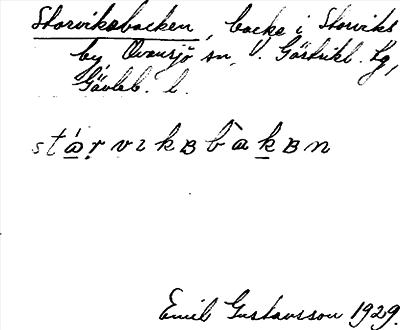 Storviksbacken, backe i Storviks
by, Ovansjö sn, Gästrikl. Lg,
Gävleb. l.
stárvıkʙbàkʙn
Emil Gustavsson 1929.